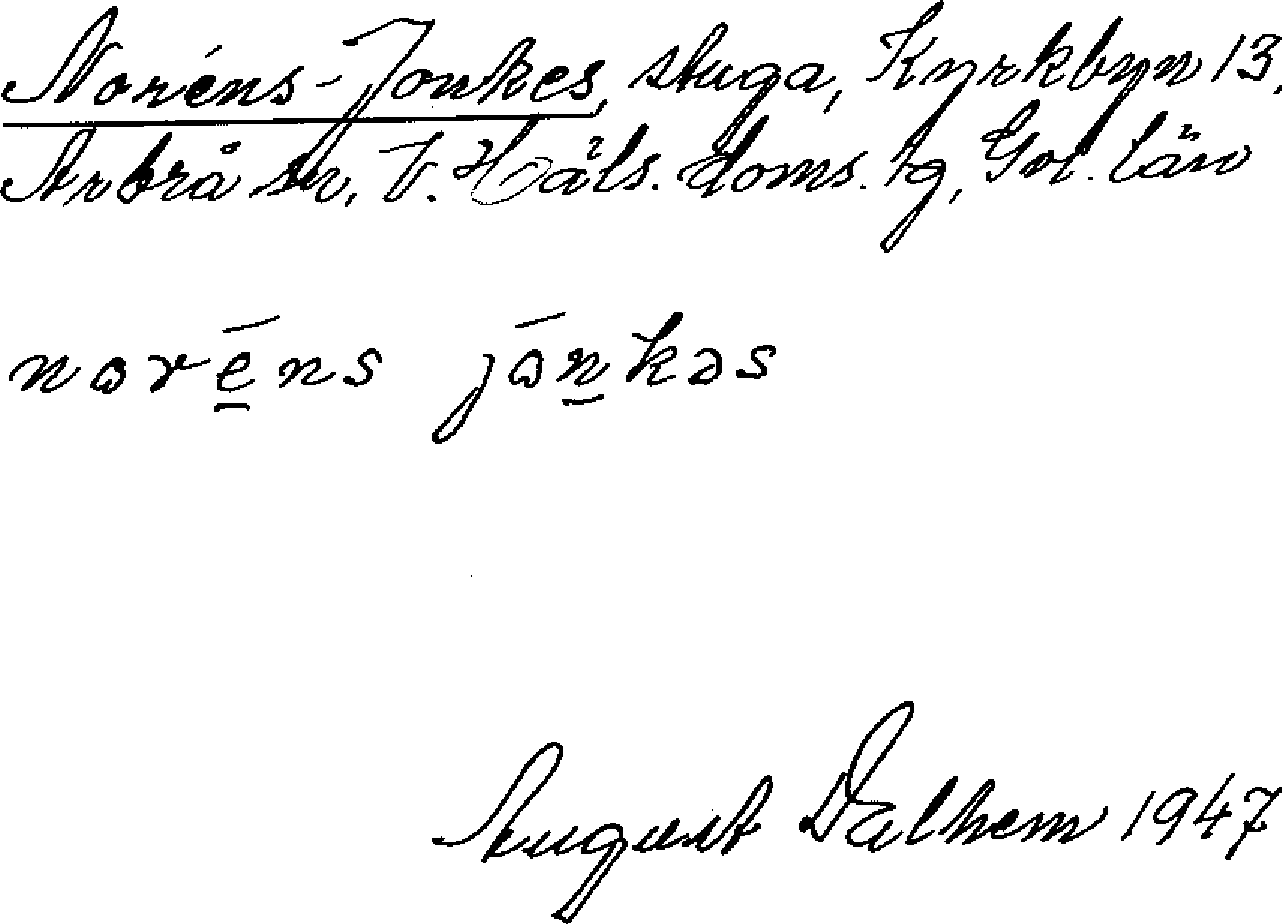 Noréns-Jonkes, stuga, Kyrkbyn 13,
Arbrå sn, V. Häls. doms. tg, Gvl. län
norēns jōnkəs
August Dalhem 1947